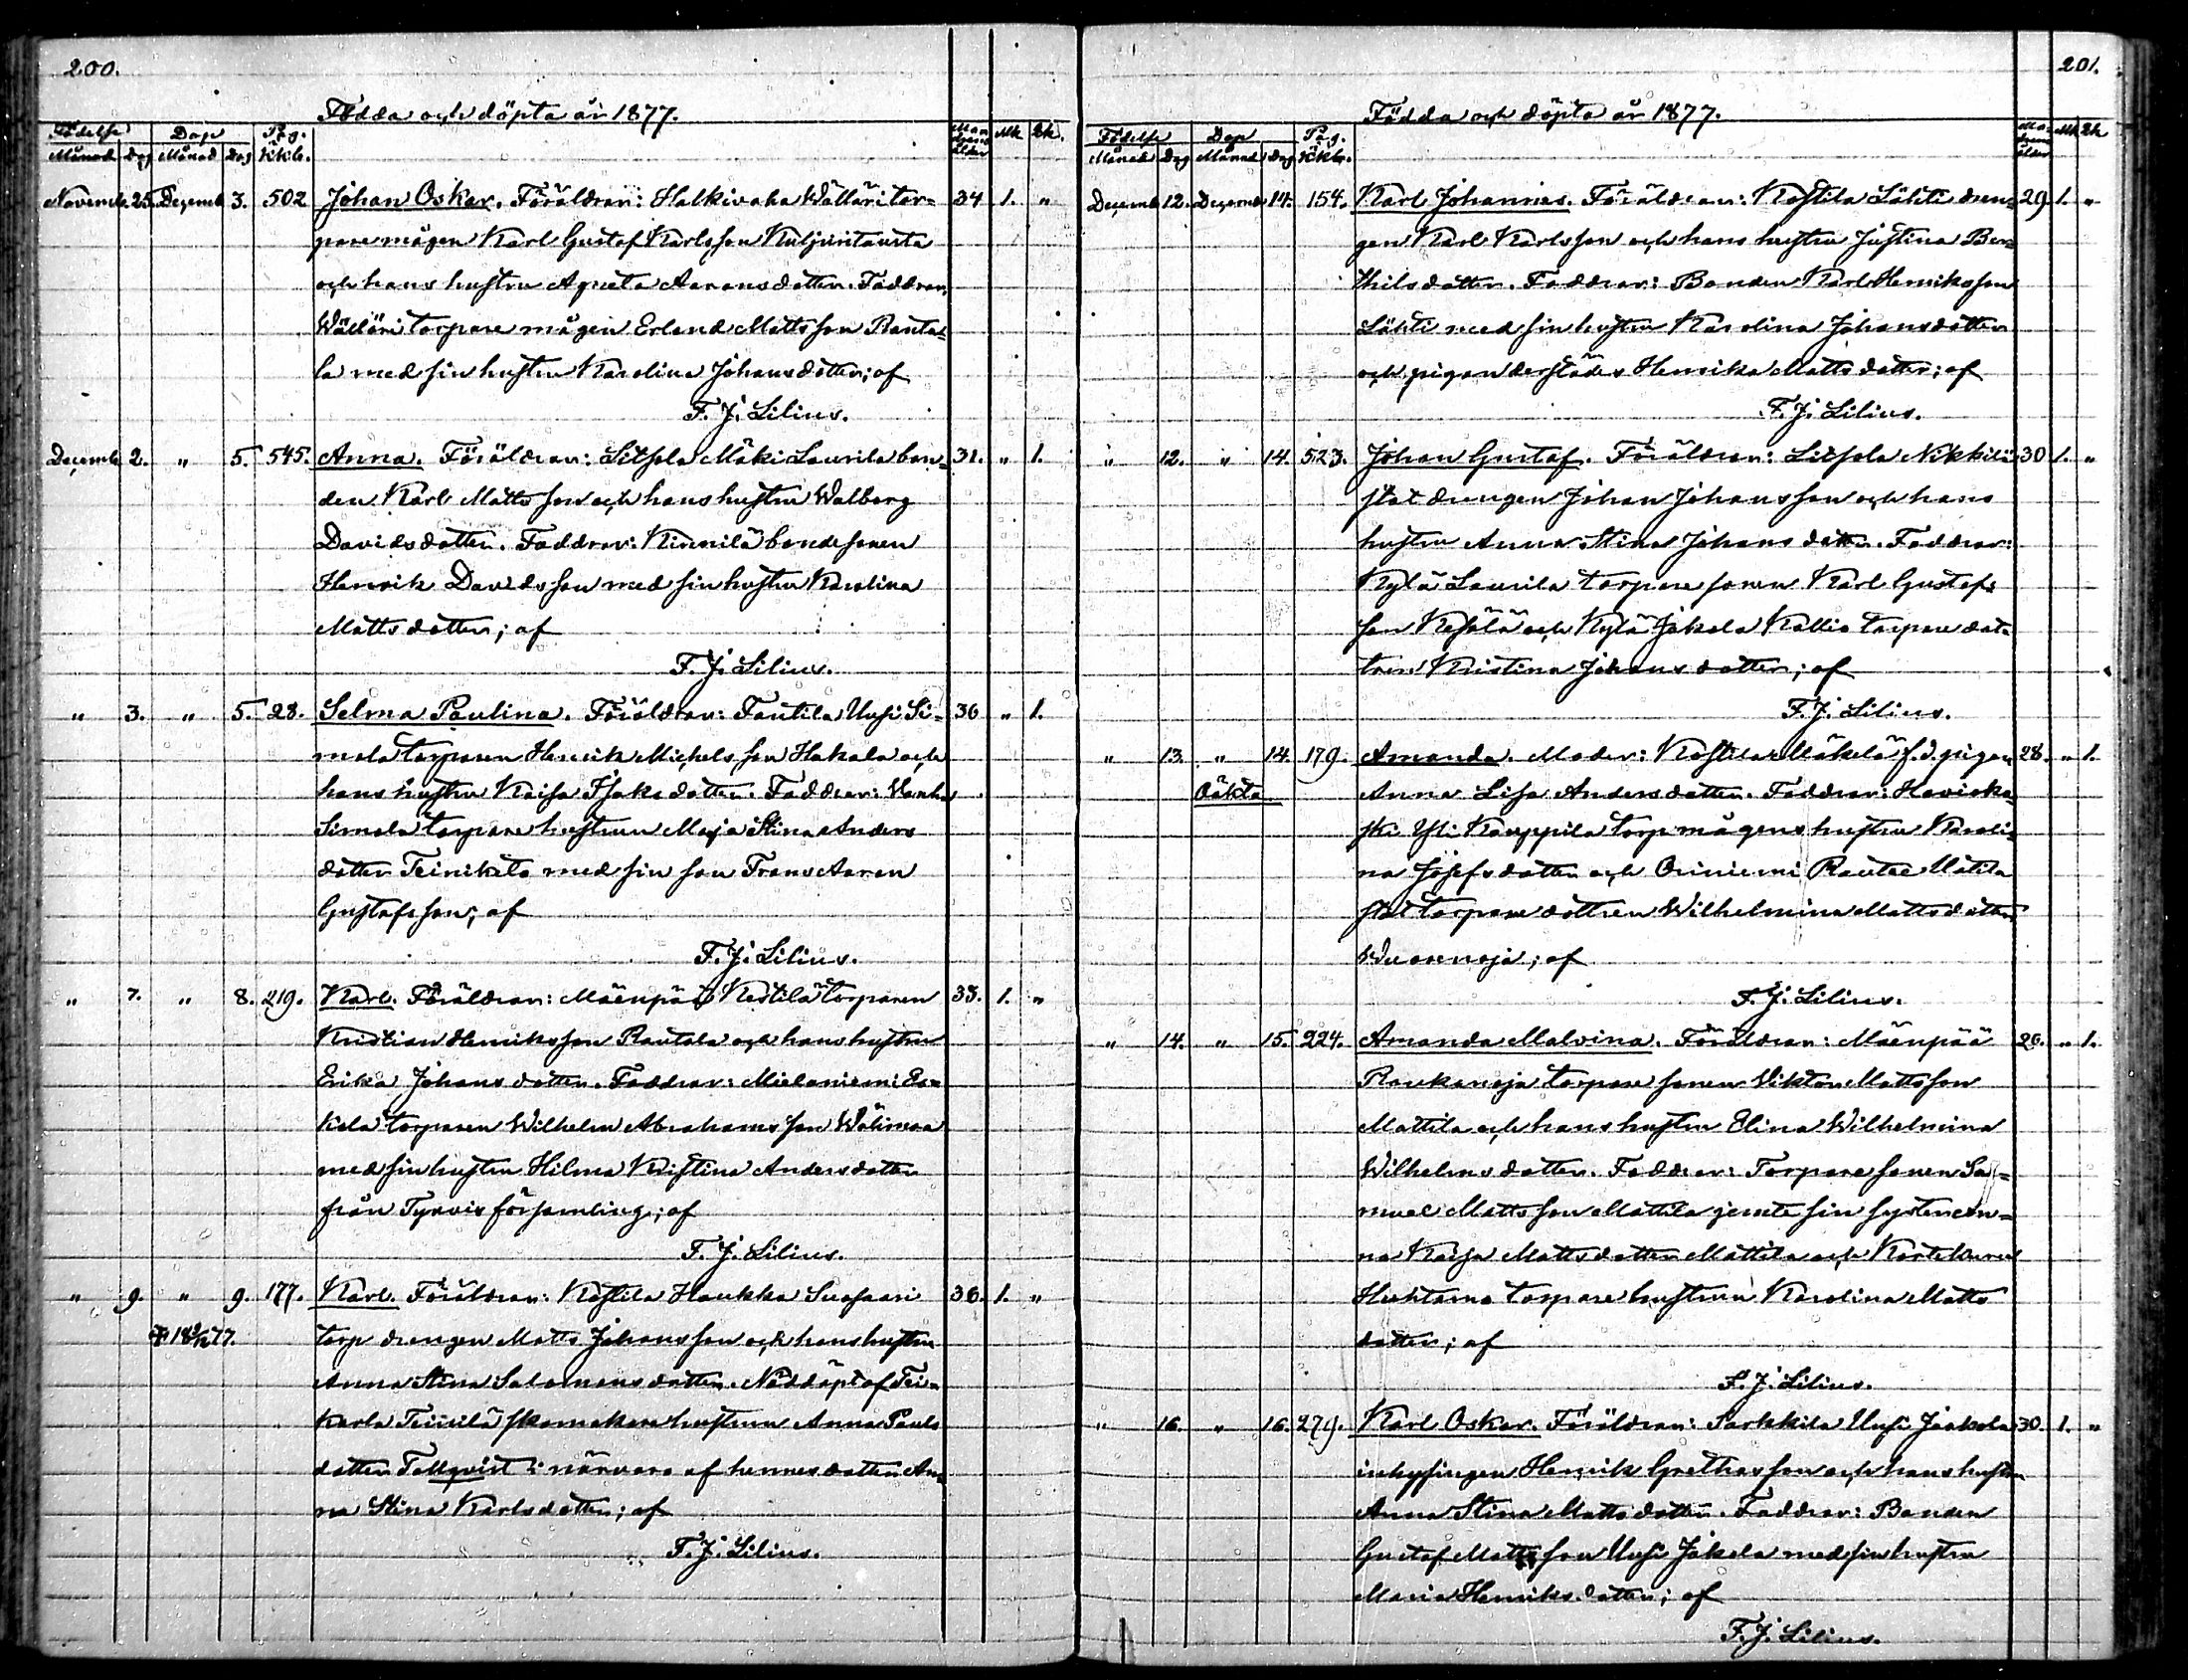 200.
Födda och döpta år 1877.
Födelse Dop Pag. Mk. Qk.
Månad Dag Månad Dag Kkb.
Novemb. 25. Decemb. 3. 502 Johan Oskar. Föräldrar: Halkivaha Wälläri tor= 34 1. "
pare mågen Karl Gustaf Karlsson Kuljuntausta
och hans hustru Agneta Aaronsdotter. Faddrar:
Wälläri torpare mågen Erland Mattsson Ranta=
la med sin hustru Karolina Johansdotter; af
F. J. Lilius.
Decemb. 2. " 5. 545. Anna. Föräldrar: Mäki Laurila bon= 31. " 1.
den Karl Mattsson och hans hustru Walborg
Davidsdotter. Faddrar: Kinnilä bondesonen
Henrik Davidsson med sin hustru Karolina
Mattsdotter; af
F. J. Lilius.
" 3. " 5. 28. Selma Paulina. Föräldrar: Fantila Uusi Si= 36 " 1.
mola torparen Henrik Michelsson Hakala och
hans hustru Kaisa Isaksdotter. Faddrar: Vanha
Simola torpare hustrun Maja Stina Anders
dotter Teinikelä med sin son Frans Aaron
Gustafsson; af
F. J. Lilius.
" 7. " 8. 219. Karl. Föräldrar: Mäenpää Kestilä torparen 33. 1. "
Kristian Henriksson Rautala och hans hustru
Erika Johansdotter. Faddrar: Mielaniemi Es=
kola torparen Wilhelm Abrahamsson Wälimaa
med sin hustru Hilma Kristina Andersdotter
från Tyrvis församling; af
F. J. Lilius.
" 9. " 9. 177. Karl. Föräldrar: Kostila Haukka Suosaari 36. 1. "
torp drengen Matts Johansson och hans hustru
Anna Stina Salomonsdotter. Nöddöpt af Tei=
karla skomakare hustrun Anna Pauls
dotter Tallqvist i närvaro af hennes dotter An=
na Stina Karlsdotter; af
F. J. Lilius.
201.
Födda och döpta år 1877.
Födelse Dop Pag. Mk Qk
Månad Dag Månad Dag Kkb.
Decemb. 12. Decemb. 14. 154. Karl Johannes. Föräldrar: Kostila Lähti dren= 29. 1. "
gen Karl Karlsson och hans hustru Justina Ber=
thilsdotter. Faddrar: Bonden Karl Henriksson
Lähti med sin hustru Karolina Johansdotter
och pigan derstädes Henrika Mattsdotter; af
F. J. Lilius.
" 12. " 14. 523. Johan Gustaf. Föräldrar: Nikkilä 30 1. "
stat drengen Johan Johansson och hans
hustru Anna Stina Johansdotter. Faddrar:
Kylä Laurila torpare sonen Karl Gustafs
son och Kylä Jakola Kallio torpare dot=
tren Kristina Johansdotter; af
F. J. Lilius.
" 13. " 14. 179. Amanda. Moder: Kostila Mäkelä f.d. pigan 28. " 1.
Oäkta Anna Lisa Andersdotter. Faddrar: Haviok=
ski Yli Kauppila torp mågens hustru Karoli=
na Josefsdotter och Oriniemi Matila
stattorpare dottren Wilhelmina Mattsdotter
Wuorenoja; af
F. J. Lilius.
" 14. " 15. 224. Amanda Malvina. Föräldrar: Mäenpää 26. " 1.
Raukanoja torpare sonen Viktor Mattsson
Mattila och hans hustru Elina Wilhelmina
Wilhelmsdotter. Faddrar: Torpare sonen Sa=
muel Mattsson Mattila jemte sin syster An=
na Kaisa Mattsdotter Mattila och
torpare hustrun Karolina Matts
dotter; af
F. J. Lilius.
" 16. " 16. 279. Karl Oskar. Föräldrar: Sarkkila Uusi Jaakola 30. 1. "
inhysingen Henrik Grelhasson och hans hustru
Anna Stina Mattsdotter. Faddrar: Bonden
Gustaf Mattsson Uusi Jakola med sin hustru
Maria Henriksdotter; af
F. J. Lilius.